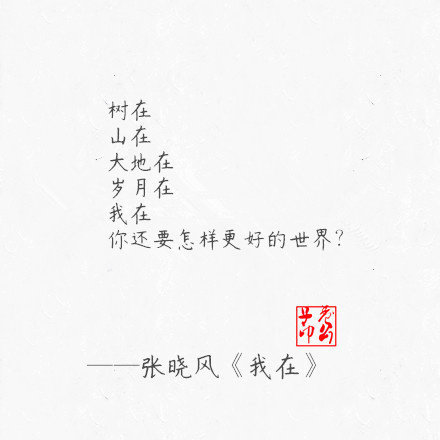 树在
山在
大地在
岁月在
我在
你还要怎样更好的世界?
——张晓风《我在》